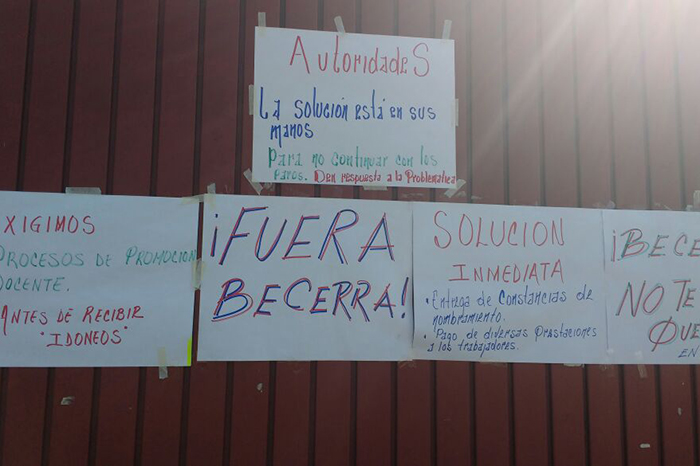 AutoridadeS
La SOLUCION ESTÁ EN SUS
MANOS
Para no continuar con los
Paros. Den respuesta a la Problematica
XIGIMOS
PROCESOS DE PROMOCION
DOCENTE.
ANTES DE RECIBIR
"IDONEOS"
¡FUERA
BECERRA!
SOLUCION
INMEDIATA
• Entrega de Constancias de
nombramiento.
• Pago de diversas Prestaciones
a los trabajadores.
¡BECE
NO TE
QUE
EN